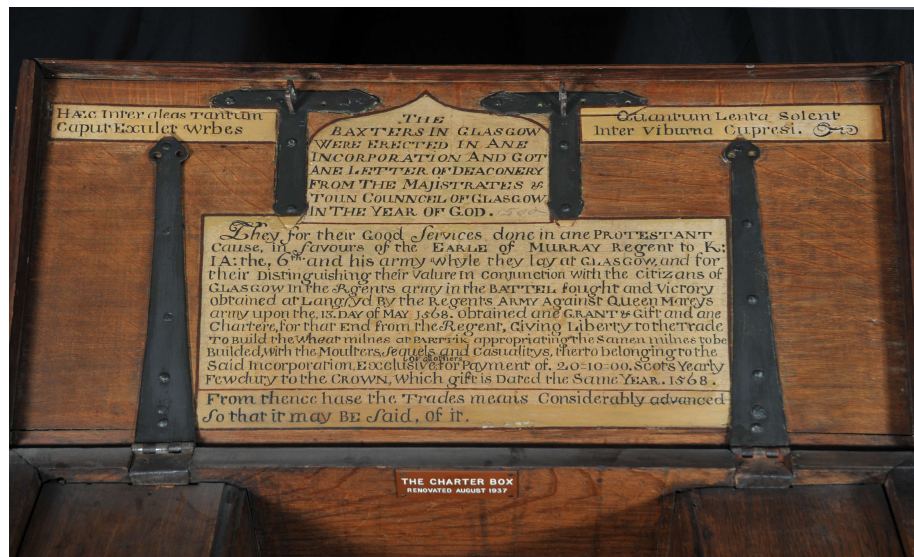 Hæc Inter aleas Tantum
Caput Exulet Wrbes
THE
BAXTERS IN GLASGOW
WERE ERECTED IN ANE
INCORPORATION AND GOT
ANE LETTER OF DEACONERY
FROM THE MAJISTRATES &
TOUN COUNNCEL OF GLASGOW
IN THE YEAR OF GOD.
Quantum Lenta Solent
Inter Viburna Cupresi.
They for their Good Services done in ane PROTESTANT
Cause, in favours of the EARLE of MURRAY Regent to K:
IA: the, 6th and his army whyle they lay at GLASGOW, and for
their Distinguishing their Valure in Conjunction with the Citizans of
GLASGOW In the Regents army in the BATTEL fought and Victory
obtained at Langsyd By the Regents ARMY Against Queen Mareys
army upon the, 13. DAY of MAY 1568. obtained ane GRANT & Gift and ane
Chartere, for that End from the Regent, Giving Liberty to the Trade
TO Build the Wheat milnes at PARTICK appropriating the Samen milnes to be
Builded, With the Moulters, Sequels and Casualitys, therto belonging to the
Said Incorporation, Exclusive for Payment of. 20=10=00. Scots Yearly
Fewduty to the CROWN, Which gift is Dated the Same YEAR. 1568.
From thence hase the Trades means Considerably advanced
So that it may BE Said, of it.
THE CHARTER BOX
RENOVATED AUGUST 1937